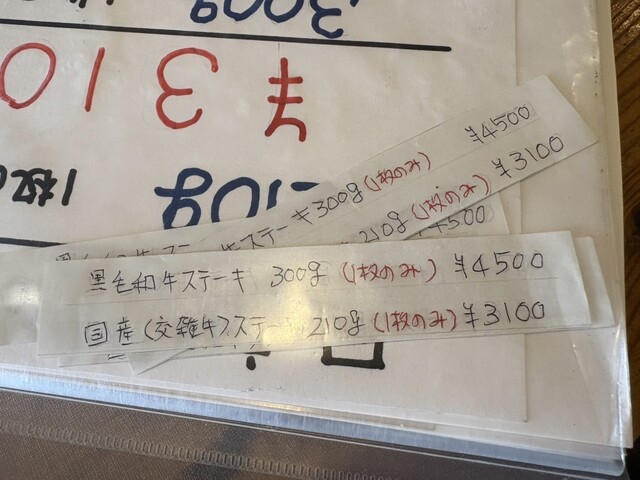 300g
¥310
1枚の
210g
黒毛和牛ステーキ300g(1枚のみ) ¥4500
210g(1枚のみ) ¥3100
¥4500
黒毛和牛ステーキ 300g (1枚のみ) ¥4500
国産(交雑牛)ステー 210g(1枚のみ) ¥3100